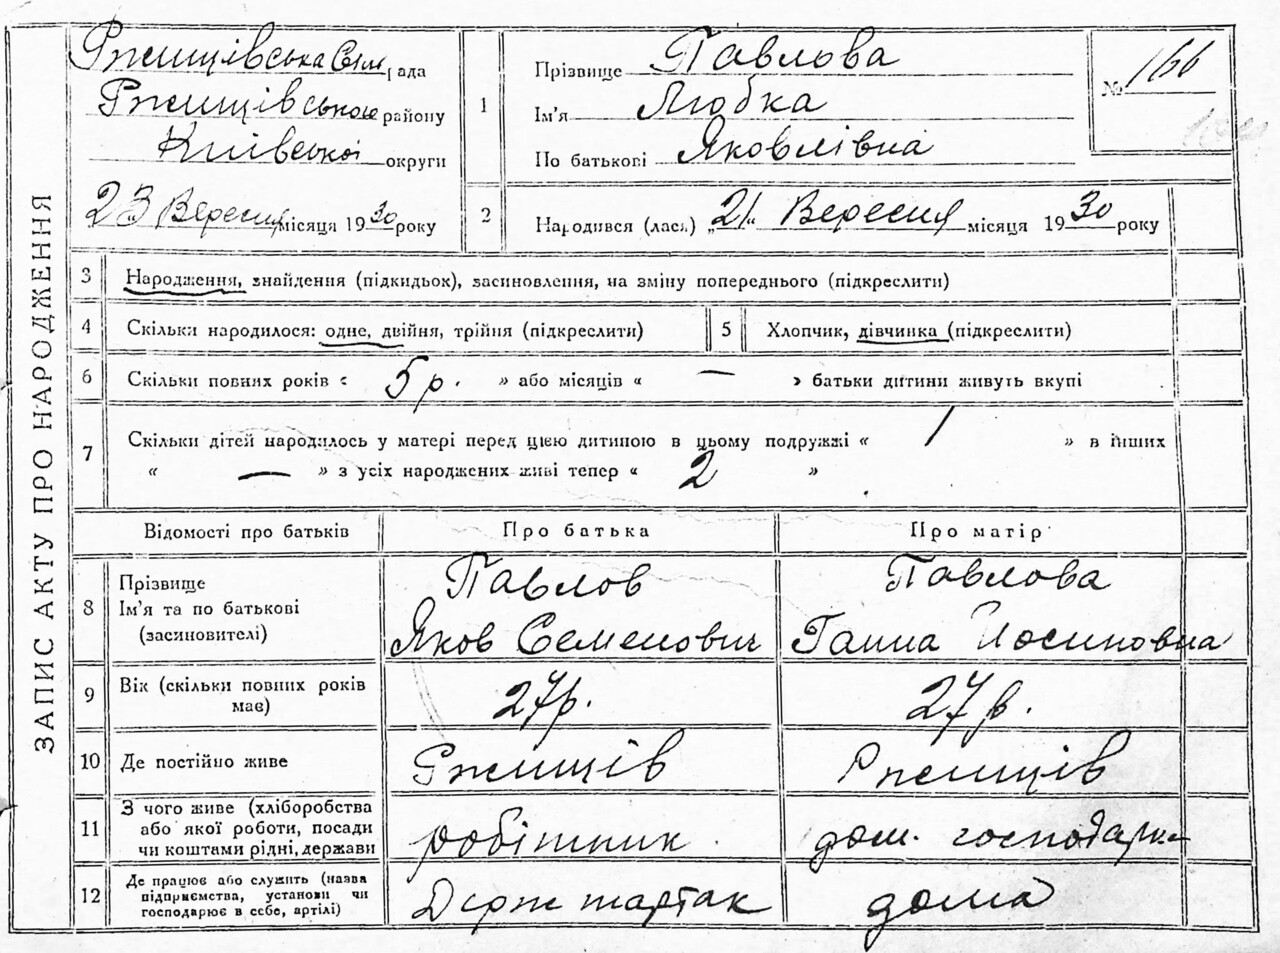 ЗАПИС АКТУ ПРО НАРОДЖЕННЯ
Ржищівська Сел рада
Ржищівського району
Київської округи
23 Вересня місяця 1930 року
1
Прізвище Павлова
Ім'я Любка
По батькові Яковлівна
№ 166
2
Народився (лась) „21“ Вересня місяця 1930 року
3 Народження, знайдення (підкидьок), засиновлення, на зміну попереднього (підкреслити)
4 Скільки народилося: одне, двійня, трійня (підкреслити)
5 Хлопчик, дівчинка (підкреслити)
6 Скільки повних років « 5 р. » або місяців « — » батьки дитини живуть вкупі
7 Скільки дітей народилось у матері перед цією дитиною в цьому подружжі « 1 » в інших
« — » з усіх народжених живі тепер « 2 »
Відомості про батьків Про батька Про матір
8 Прізвище
Ім'я та по батькові
(засиновителі)
Павлов
Яков Семенович
Павлова
Ганна Иосиповна
9 Вік (скільки повних років
має)
27 р.
27 р.
10 Де постійно живе Ржищів Ржищів
11 З чого живе (хліборобства
або якої роботи, посади
чи коштами рідні, держави
робітник
дом. господарка
12 Де працює або служить (назва
підприємства, установи чи
господарює в себе, артілі)
Держ тартак
дома